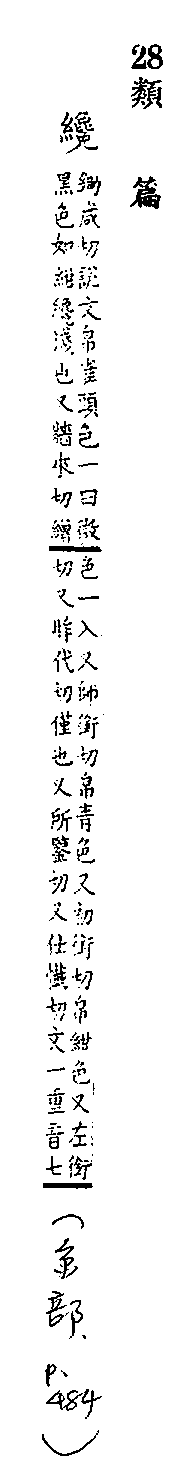 28 類篇
纔
鋤咸切說文帛雀頭色一曰微
黑色如紺纔淺也又牆來切繒
色一入又師銜切帛青色又初銜切帛紺色又左銜
切又昨代切僅也又所鑒切又仕懺切文一重音七
（糸部、p.484）